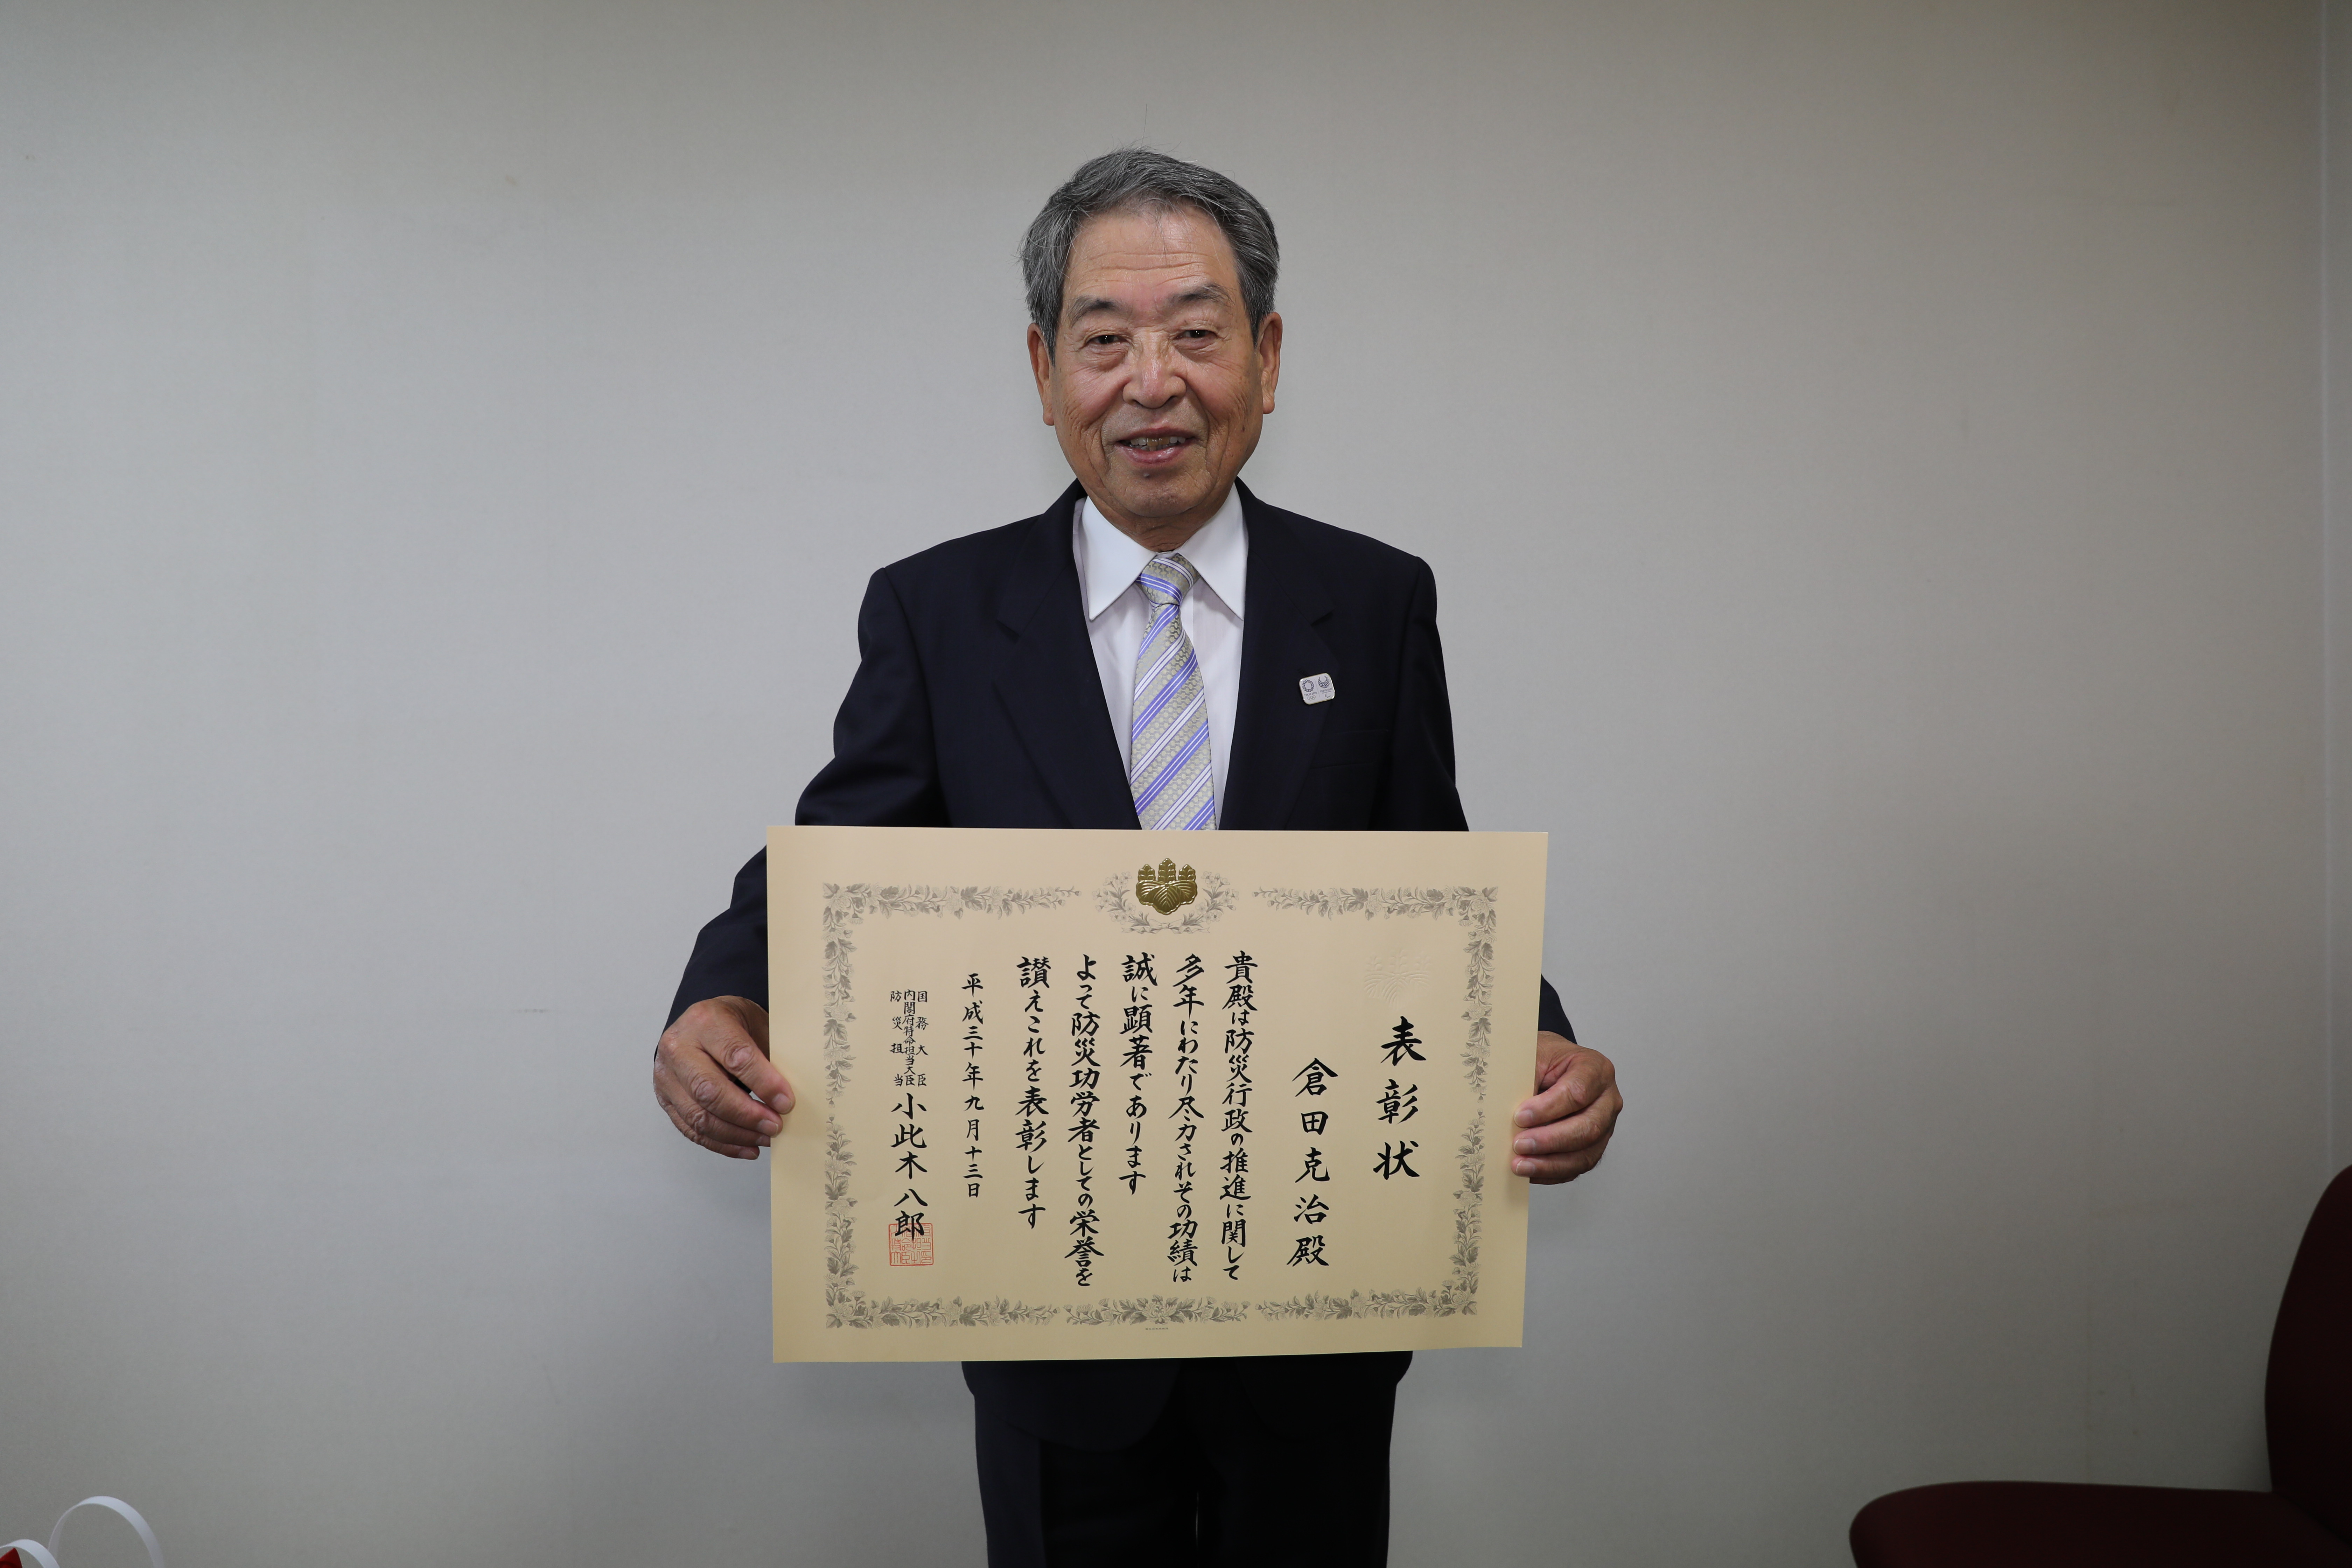 表彰状
倉田克治殿
貴殿は防災行政の推進に関して
多年にわたり尽力されその功績は
誠に顕著であります
よって防災功労者としての栄誉を
讃えこれを表彰します
平成三十年九月十三日
国務大臣
内閣府特命担当大臣
防災担当
小此木八郎